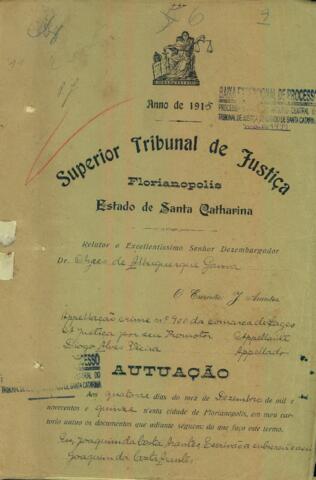 6
Anno de 1915
BAIXA DEFINICIONAL DE PROCESSO
TRIBUNAL DE JUSTIÇA DO ESTADO DE SANTA CATARINA
Superior Tribunal de Justiça
Florianopolis
Estado de Santa Catharina
Relator o Excellentissimo Senhor Dezembargador
Dr. de Albuquerque Gama
O J.
Appellação crime nº 900 da comarca de Lages
A Justiça por seu Promotor Appellante
Diogo Alves Vieira Appellado
PROCESSO
AUTUAÇÃO
Aos quatorze dias do mez de Dezembro de mil e
novecentos e quinze n'esta cidade de Florianopolis, em meu car-
torio autuo os documentos que adiante seguem; do que faço este termo.
Eu, Joaquim da Costa Arantes Escrivão
Joaquim da Costa Arantes